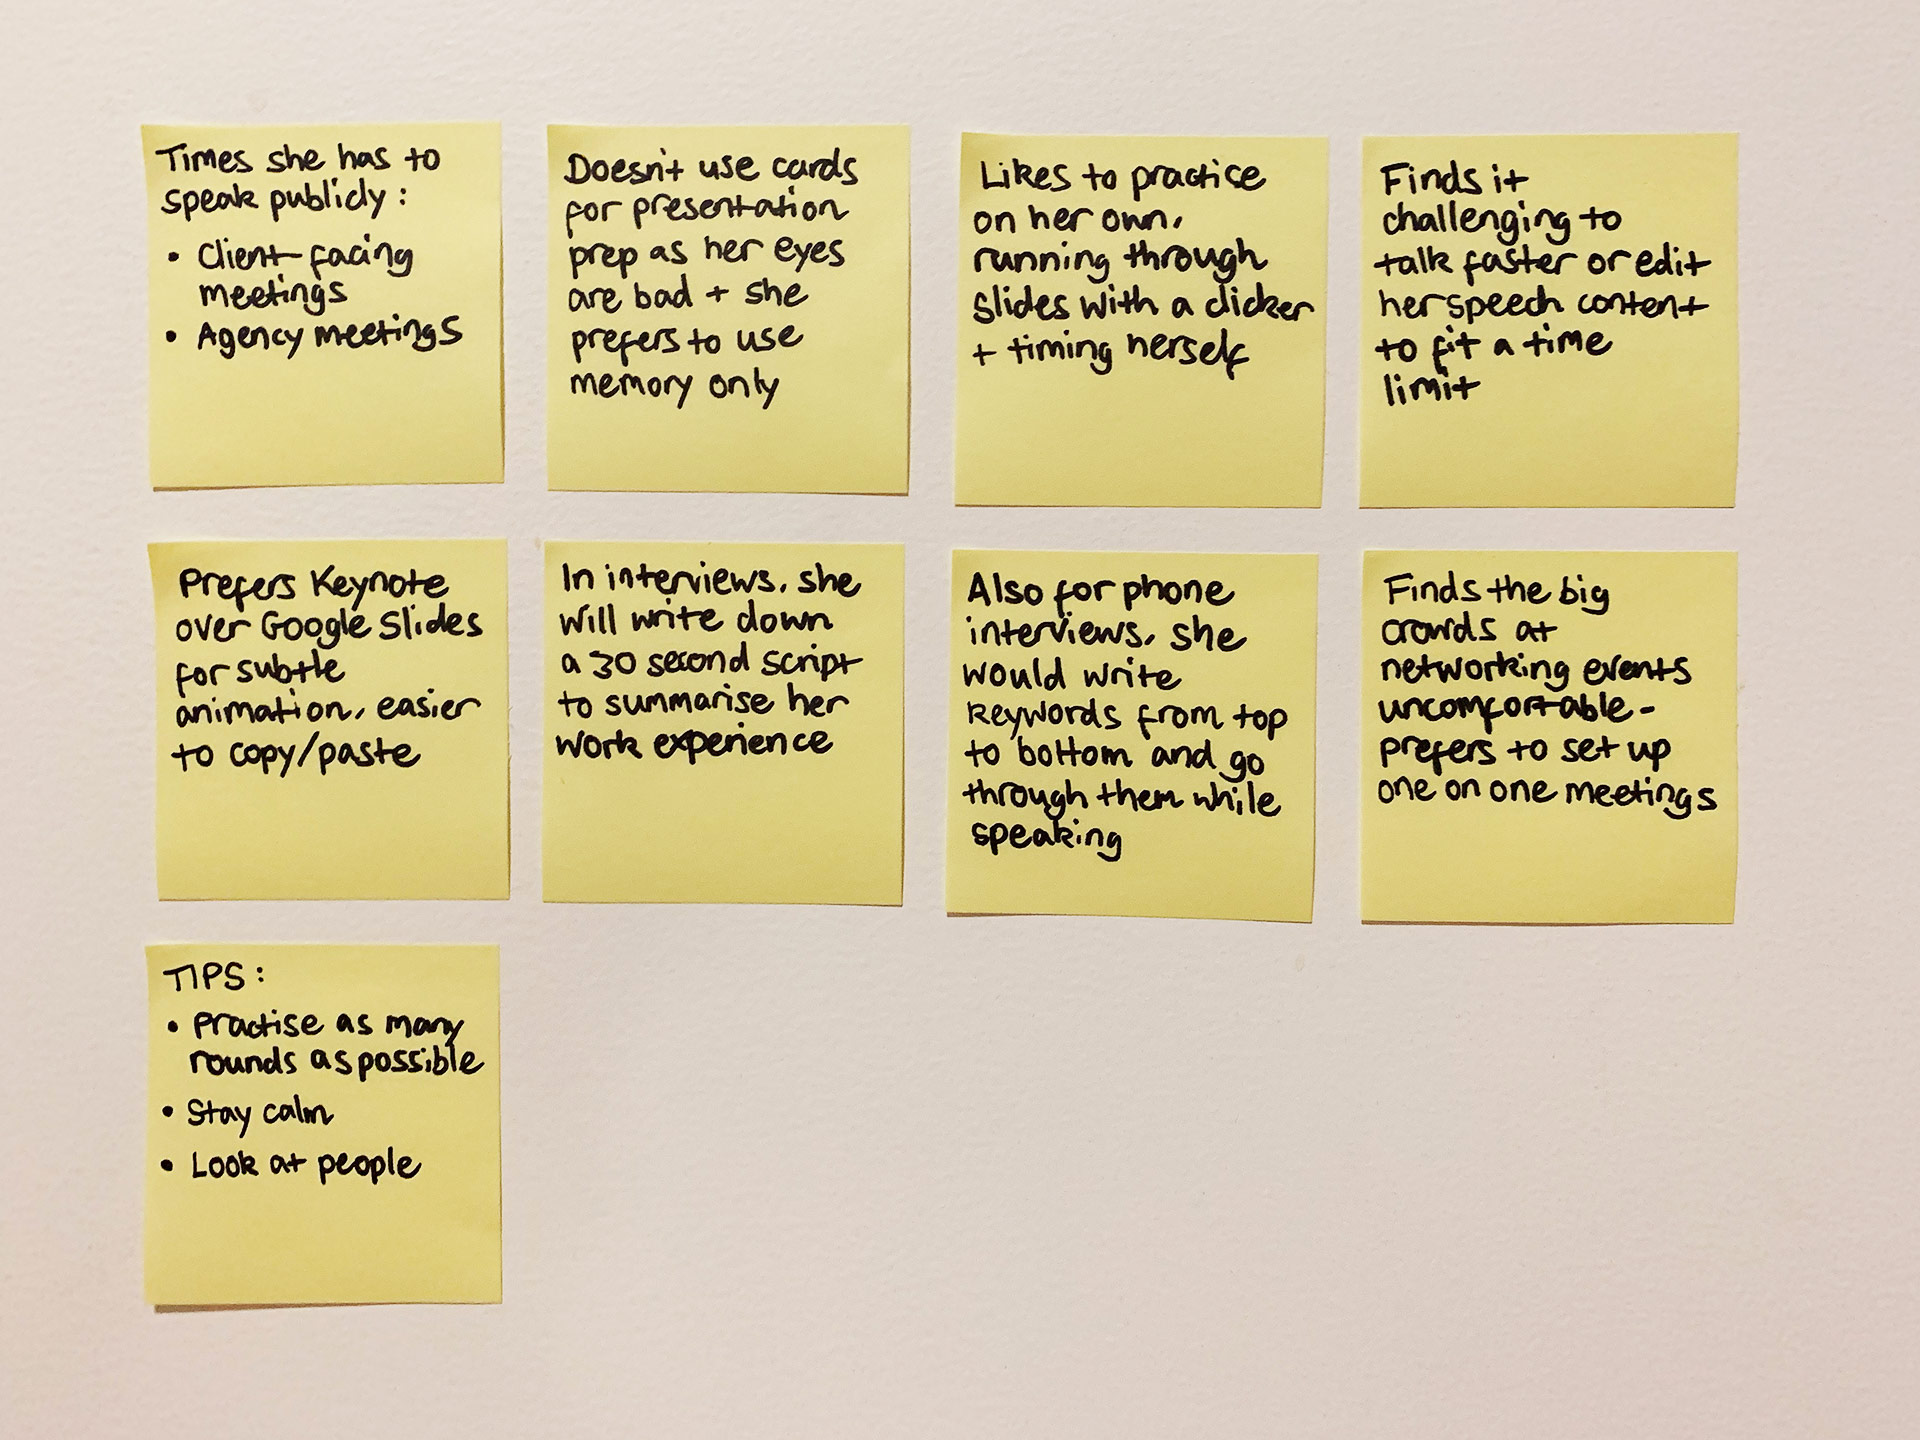 Times she has to
speak publicly:
• Client-facing
meetings
• Agency meetings
Doesn't use cards
for presentation
prep as her eyes
are bad + she
prefers to use
memory only
Likes to practise
on her own,
running through
slides with a clicker
+ timing herself
Finds it
challenging to
talk faster or edit
her speech content
to fit a time
limit
Prefers Keynote
over Google Slides
for subtle
animation, easier
to copy/paste
In interviews, she
will write down
a 30 second script
to summarise her
work experience
Also for phone
interviews, she
would write
keywords from top
to bottom and go
through them while
speaking
Finds the big
crowds at
networking events
uncomfortable-
prefers to set up
one on one meetings
TIPS:
• Practise as many
rounds as possible
• Stay calm
• Look at people